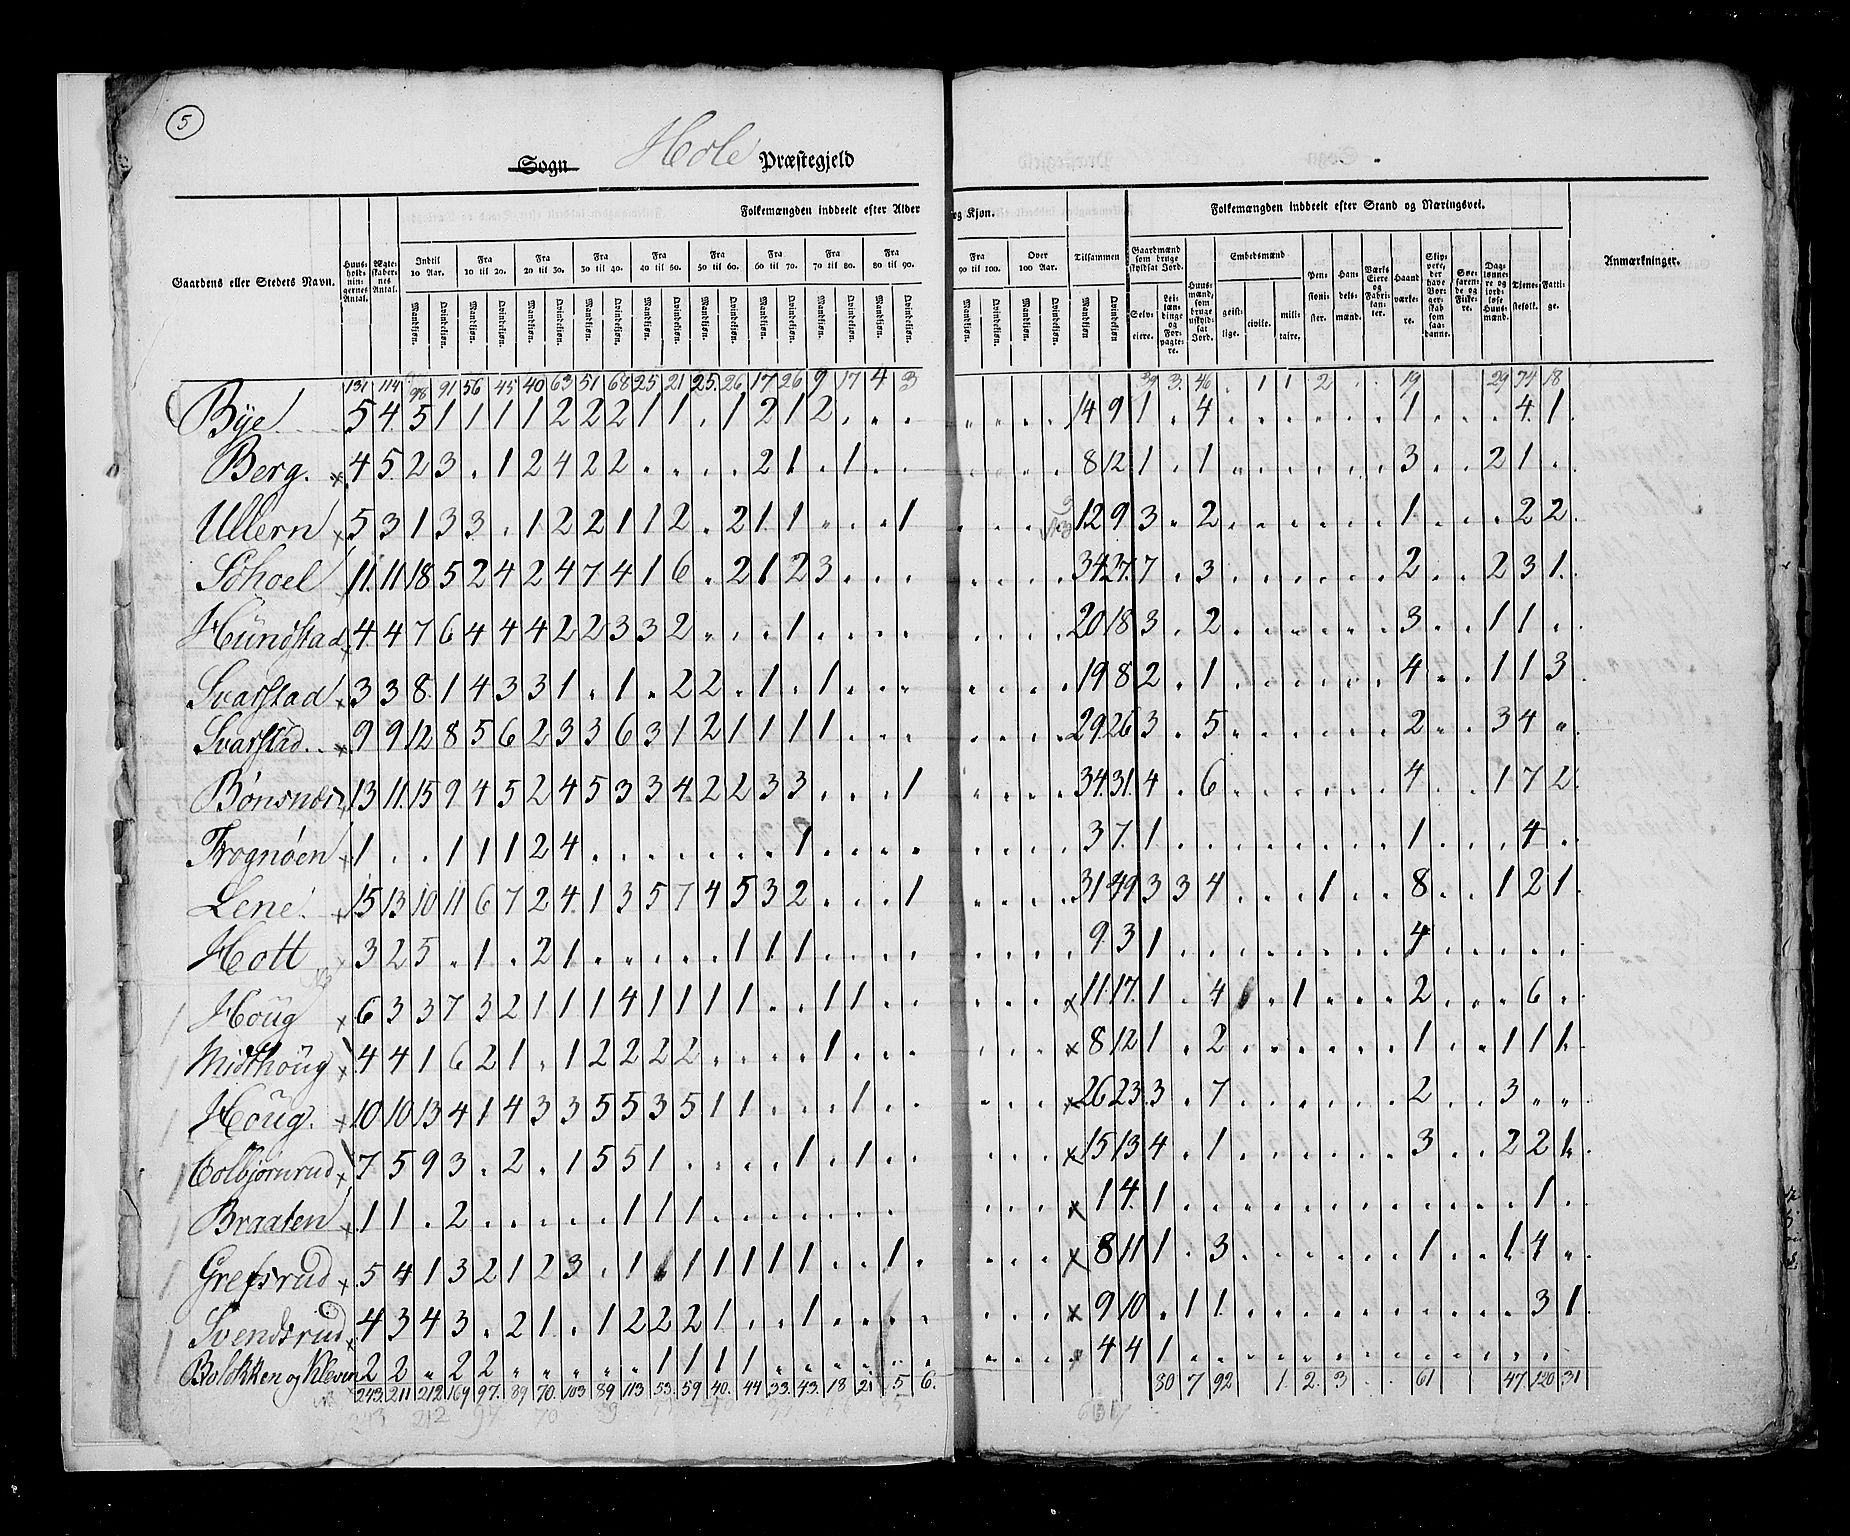 5
Sogn Hole Præstegjeld
Folkemængden inddeelt efter Alder og Kjøn.
Folkemængden inddeelt efter Stand og Næringsvei.
Gaardens eller Stedets Navn.
Huusholdningernes Antal.
Ægteskabernes Antal.
Indtil 10 Aar. Fra 10 til 20. Fra 20 til 30. Fra 30 til 40. Fra 40 til 50. Fra 50 til 60. Fra 60 til 70. Fra 70 til 80. Fra 80 til 90. Fra 90 til 100. Over 100 Aar. Tilsammen
Mandkjøn. Qvindekjøn.
Gaardmænd som bruge skyldsat Jord.
Selveiere. Leilændinge og Forpagtere.
Huusmænd, som bruge uskyldsat Jord.
Embedsmænd
geistlige. civile. militaire.
Pensionister.
Handelsmænd.
Værks Eiere og Fabrikanter.
Haandværkere.
Søefarende og Fiskere.
Daglønnere og jordløse Huusmænd.
Tjenestefolk.
Fattige.
Anmærkninger.
131 114 98 91 56 45 40 63 51 68 25 21 25. 26 17 26 9 17 4 3 39 3. 46 . 1 1 2 . . 19 29 74 18
Bye 5 4 5 1 1 1 1 2 2 2 1 1 . 1 2 1 2 . . . . . . . 14 9 1 . 4 . . . . . . 1 . . . 4 1
Berg. 4 5 2 3 . 1 2 4 2 2 . . . . 2 1 . 1 . . . . . . 8 12 1 . 1 . . . . . . 3 . . 2 1 .
Ullern 5 3 1 3 3 . 1 2 2 1 1 2 . 2 1 1 . . . 1 . . . . 12 9 3 . 2 . . . . . . 1 . . . 2 2
Sohoel 11 11 18 5 2 4 2 4 7 4 1 6 . 2 1 2 3 . . . . . . . 34 27 7 . 3 . . . . . . 2 . . 2 3 1
Hündstad 4 4 7 6 4 4 4 2 2 3 3 2 . . . 1 . . . . . . . . 20 18 3 . 2 . . . . . . 3 . . 1 1 .
Svarstad 3 3 8 1 4 3 3 1 . 1 . 2 2 . 1 . 1 . . . . . . . 19 8 2 . 1 . . . . . . 4 . . 1 1 3
Svarstad 9 9 12 8 5 6 2 3 3 6 3 1 2 1 1 1 1 . . . . . . . 29 26 3 . 5 . . . . . . 2 . . 3 4 .
Bønsnæs 13 11 15 9 4 5 2 4 5 3 3 4 2 2 3 3 . . . 1 . . . . 34 31 4 . 6 . . . . . . 4 . . 1 7 2
Frognøen 1 . . 1 1 1 2 4 . . . . . . . 1 . . . . . . . . 3 7 1 . . . . . . . . 1 . . . 4 .
Lene 15 13 10 11 6 7 2 4 1 3 5 7 4 5 3 2 . . . 1 . . . . 31 49 3 3 4 . . . 1 . . 8 . . 1 2 1
Hott 3 2 5 . 1 . 2 1 . . . . . 1 1 1 . . . . . . . . 9 3 1 . . . . . . . . 4 . . . . .
Houg 6 3 3 7 3 2 1 1 1 4 1 1 1 1 . . 1 1 . . . . . . 11 17 1 . 4 . . 1 . . . 2 . . . 6 .
Midthoug 4 4 1 6 2 1 . 1 2 2 2 2 . . . . 1 . . . . . . . 8 12 1 . 2 . . . . . . 1 . . 1 1 1
Houg. 10 10 13 4 1 4 3 3 5 5 3 5 1 1 . . . 1 . . . . . . 26 23 3 . 7 . . . . . . 2 . . 3 . .
Colbjørnrud 7 5 9 3 . 2 . 1 5 5 1 . . . . 1 . 1 . . . . . . 15 13 4 . 1 . . . . . . 3 . . 2 2 1
Braaten 1 1 . 2 . . . . . 1 1 1 . . . . . . . . . . . . 1 4 1 . . . . . . . . . . . . 1 .
Grefsrud 5 4 1 3 2 1 2 3 . 1 1 1 1 1 1 1 . . 1 . . . . . 8 11 1 . 3 . . . . . . 1 . . 1 4 .
Svendsrud 4 3 4 3 . 2 1 . 1 2 2 2 1 . . 1 . . . . . . . . 9 10 . 1 1 . . . . . . . . . . 3 1
Boldkken og Kleven 2 2 . 2 2 . . . . . 1 1 1 1 . . . . . . . . . . 4 4 1 . . . . . . . . . . . . . .
243. 211 212 164 97. 89 70. 103 89 113 53. 59 40. 44 33. 43. 18 21 5 6. 80 7 92 1. 2. 3 . . 61 47 120 31
243 212 97 70 89